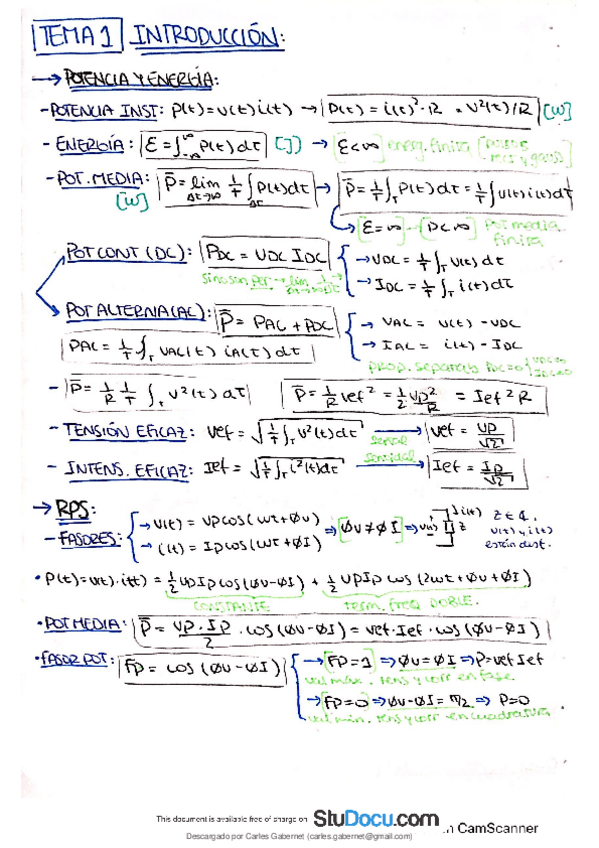 TEMA 1 INTRODUCCIÓN:
→ POTENCIA Y ENERGÍA:
- POTENCIA INST: P(t)=v(t)i(t) → P(t) = i(t)²·R = V²(t)/R [W]
- ENERGÍA: Ɛ=∫_{-∞}^{∞} P(t)dt [J] → Ɛ<∞ energ. finita
- POT. MEDIA: P̄ = lim_{Δt→∞} 1/T ∫_{Δt} P(t)dt → P̄ = 1/T ∫_T P(t)dt = 1/T ∫ v(t)i(t)dt
[W] → Ɛ=∞ P<∞ Pot media finita
POT CONT (DC): P_DC = V_DC I_DC → V_DC = 1/T ∫_T v(t)dt
Si no son per → lim → I_DC = 1/T ∫_T i(t)dt
POT ALTERNA (AC): P̄ = P_AC + P_DC → V_AC = v(t) - V_DC
P_AC = 1/T ∫_T V_AC(t) i_A(t)dt → I_AC = i(t) - I_DC
- P̄ = 1/R 1/T ∫_T v²(t)dt P̄ = 1/R Vef² = 1/2 Vp²/R = Ief² R
- TENSIÓN EFICAZ: Vef = √(1/T ∫_T v²(t)dt) → Vef = Vp/√2
señal senoidal
- INTENS. EFICAZ: Ief = √(1/T ∫_T i²(t)dt) → Ief = Ip/√2
→ RPS:
- FASORES: → v(t) = Vp cos(ωt+Øv) ⇒ Øv ≠ ØI ⇒ v(t) i(t) z Z ∈ ℂ,
→ i(t) = Ip cos(ωt+ØI) v(t) y i(t) están dist.
• P(t)=v(t)·i(t) = 1/2 Vp Ip cos(Øv-ØI) + 1/2 Vp Ip cos(2ωt+Øv+ØI)
CONSTANTE term. freq DOBLE.
• POT MEDIA: P̄ = Vp·Ip/2 · cos(Øv-ØI) = Vef·Ief·cos(Øv-ØI)
• FACTOR POT: FP = cos(Øv-ØI) → FP=1 ⇒ Øv=ØI ⇒ P=Vef Ief
val máx. tens y corr en fase
→ FP=0 ⇒ Øv-ØI = π/2 ⇒ P=0
val min. tens y corr en cuadratura
This document is available free of charge on StuDocu.com
n CamScanner
Descargado por Carles Gabernet (carles.gabernet@gmail.com)